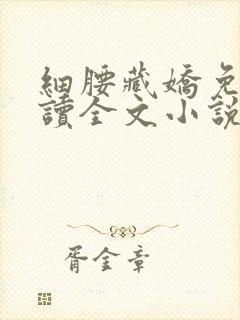 細腰藏嬌免
讀全文小說
胥金章